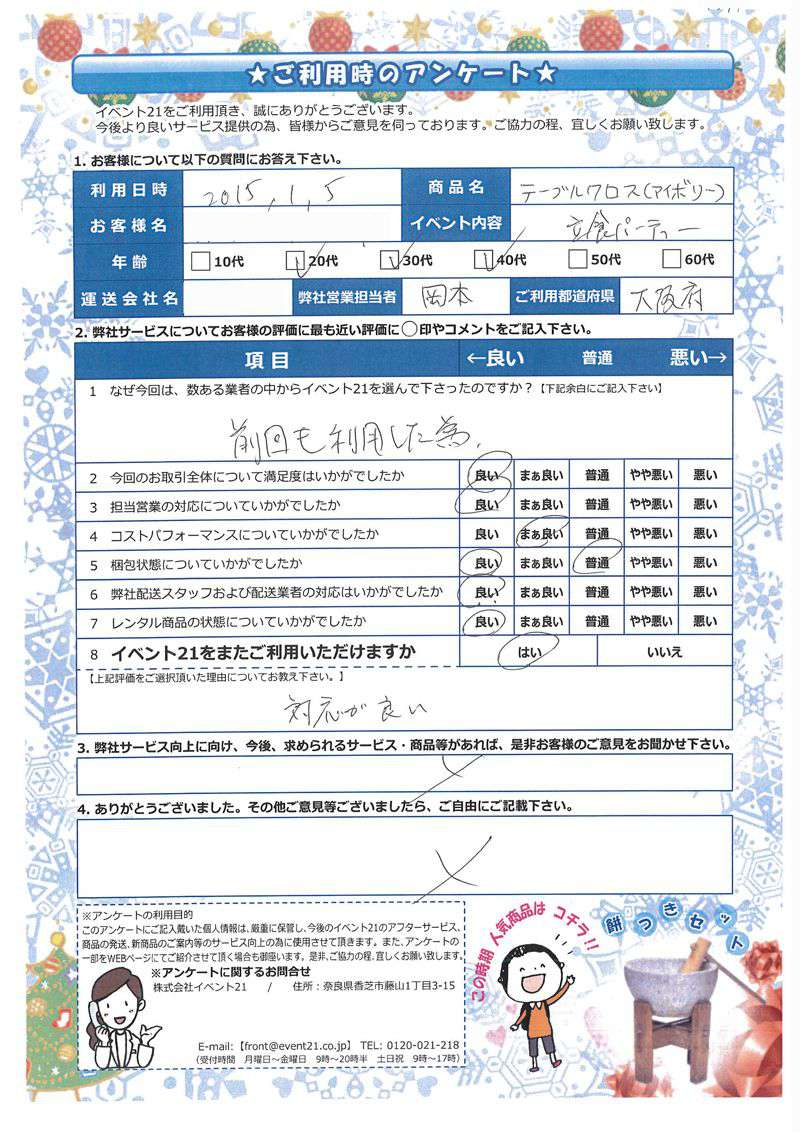 ★ご利用時のアンケート★
イベント21をご利用頂き、誠にありがとうございます。
今後より良いサービス提供の為、皆様からご意見を伺っております。ご協力の程、宜しくお願い致します。
1. お客様について以下の質問にお答え下さい。
利用日時 2015,1,5 商品名 テーブルクロス(アイボリー)
お客様名 イベント内容 立食パーティー
年齢 10代 20代 30代 40代 50代 60代
運送会社名 弊社営業担当者 岡本 ご利用都道府県 大阪府
2. 弊社サービスについてお客様の評価に最も近い評価に○印やコメントをご記入下さい。
項目 ←良い 普通 悪い→
1 なぜ今回は、数ある業者の中からイベント21を選んで下さったのですか？【下記余白にご記入下さい】
前回も利用した為.
2 今回のお取引全体について満足度はいかがでしたか 良い まぁ良い 普通 やや悪い 悪い
3 担当営業の対応についていかがでしたか 良い まぁ良い 普通 やや悪い 悪い
4 コストパフォーマンスについていかがでしたか 良い まぁ良い 普通 やや悪い 悪い
5 梱包状態についていかがでしたか 良い まぁ良い 普通 やや悪い 悪い
6 弊社配送スタッフおよび配送業者の対応はいかがでしたか 良い まぁ良い 普通 やや悪い 悪い
7 レンタル商品の状態についていかがでしたか 良い まぁ良い 普通 やや悪い 悪い
8 イベント21をまたご利用いただけますか はい いいえ
【上記評価をご選択頂いた理由についてお教え下さい。】
対応が良い
3. 弊社サービス向上に向け、今後、求められるサービス・商品等があれば、是非お客様のご意見をお聞かせ下さい。
4. ありがとうございました。その他ご意見等ございましたら、ご自由にご記載下さい。
※アンケートの利用目的
このアンケートにご記入戴いた個人情報は、厳重に保管し、今後のイベント21のアフターサービス、
商品の発送、新商品のご案内等のサービス向上の為に使用させて頂きます。また、アンケートの
一部をWEBページにてご紹介させて頂く場合も御座います。是非、ご協力の程、宜しくお願い致します。
※アンケートに関するお問合せ
株式会社イベント21 / 住所：奈良県香芝市藤山1丁目3-15
E-mail:【front@event21.co.jp】 TEL: 0120-021-218
(受付時間 月曜日～金曜日 9時～20時半 土日祝 9時～17時)
この時期 人気商品は コチラ!!
餅つきセット